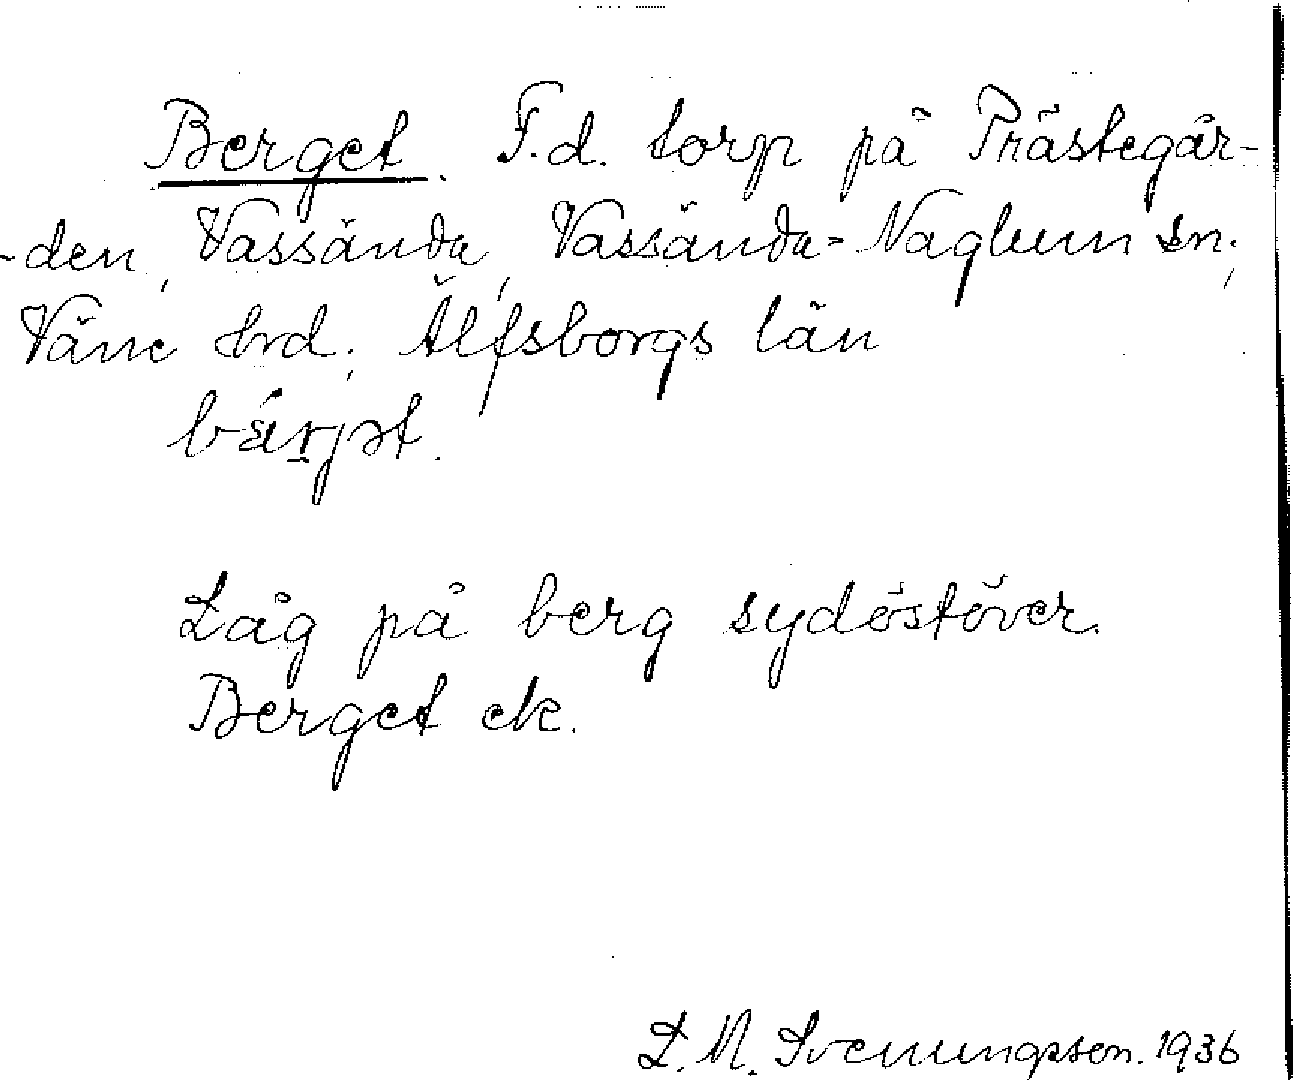 Berget. F.d. torp på Prästegår-
-den, Vassända, Vassända-Naglum sn,
Väne hrd, Älfsborgs län
bärjət.
Låg på berg sydöstöver.
Berget ek.
D. M. Svenungsson. 1936